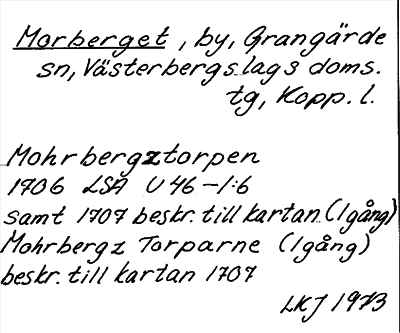 Morberget, by, Grangärde
sn, Västerbergslags doms.
tg, Kopp. l.
Mohrbergztorpen
1706 LSA U 46-1:6
samt 1707 beskr. till kartan (1 gång)
Mohrbergz Torparne (1 gång)
beskr. till kartan 1707
LKJ 1973